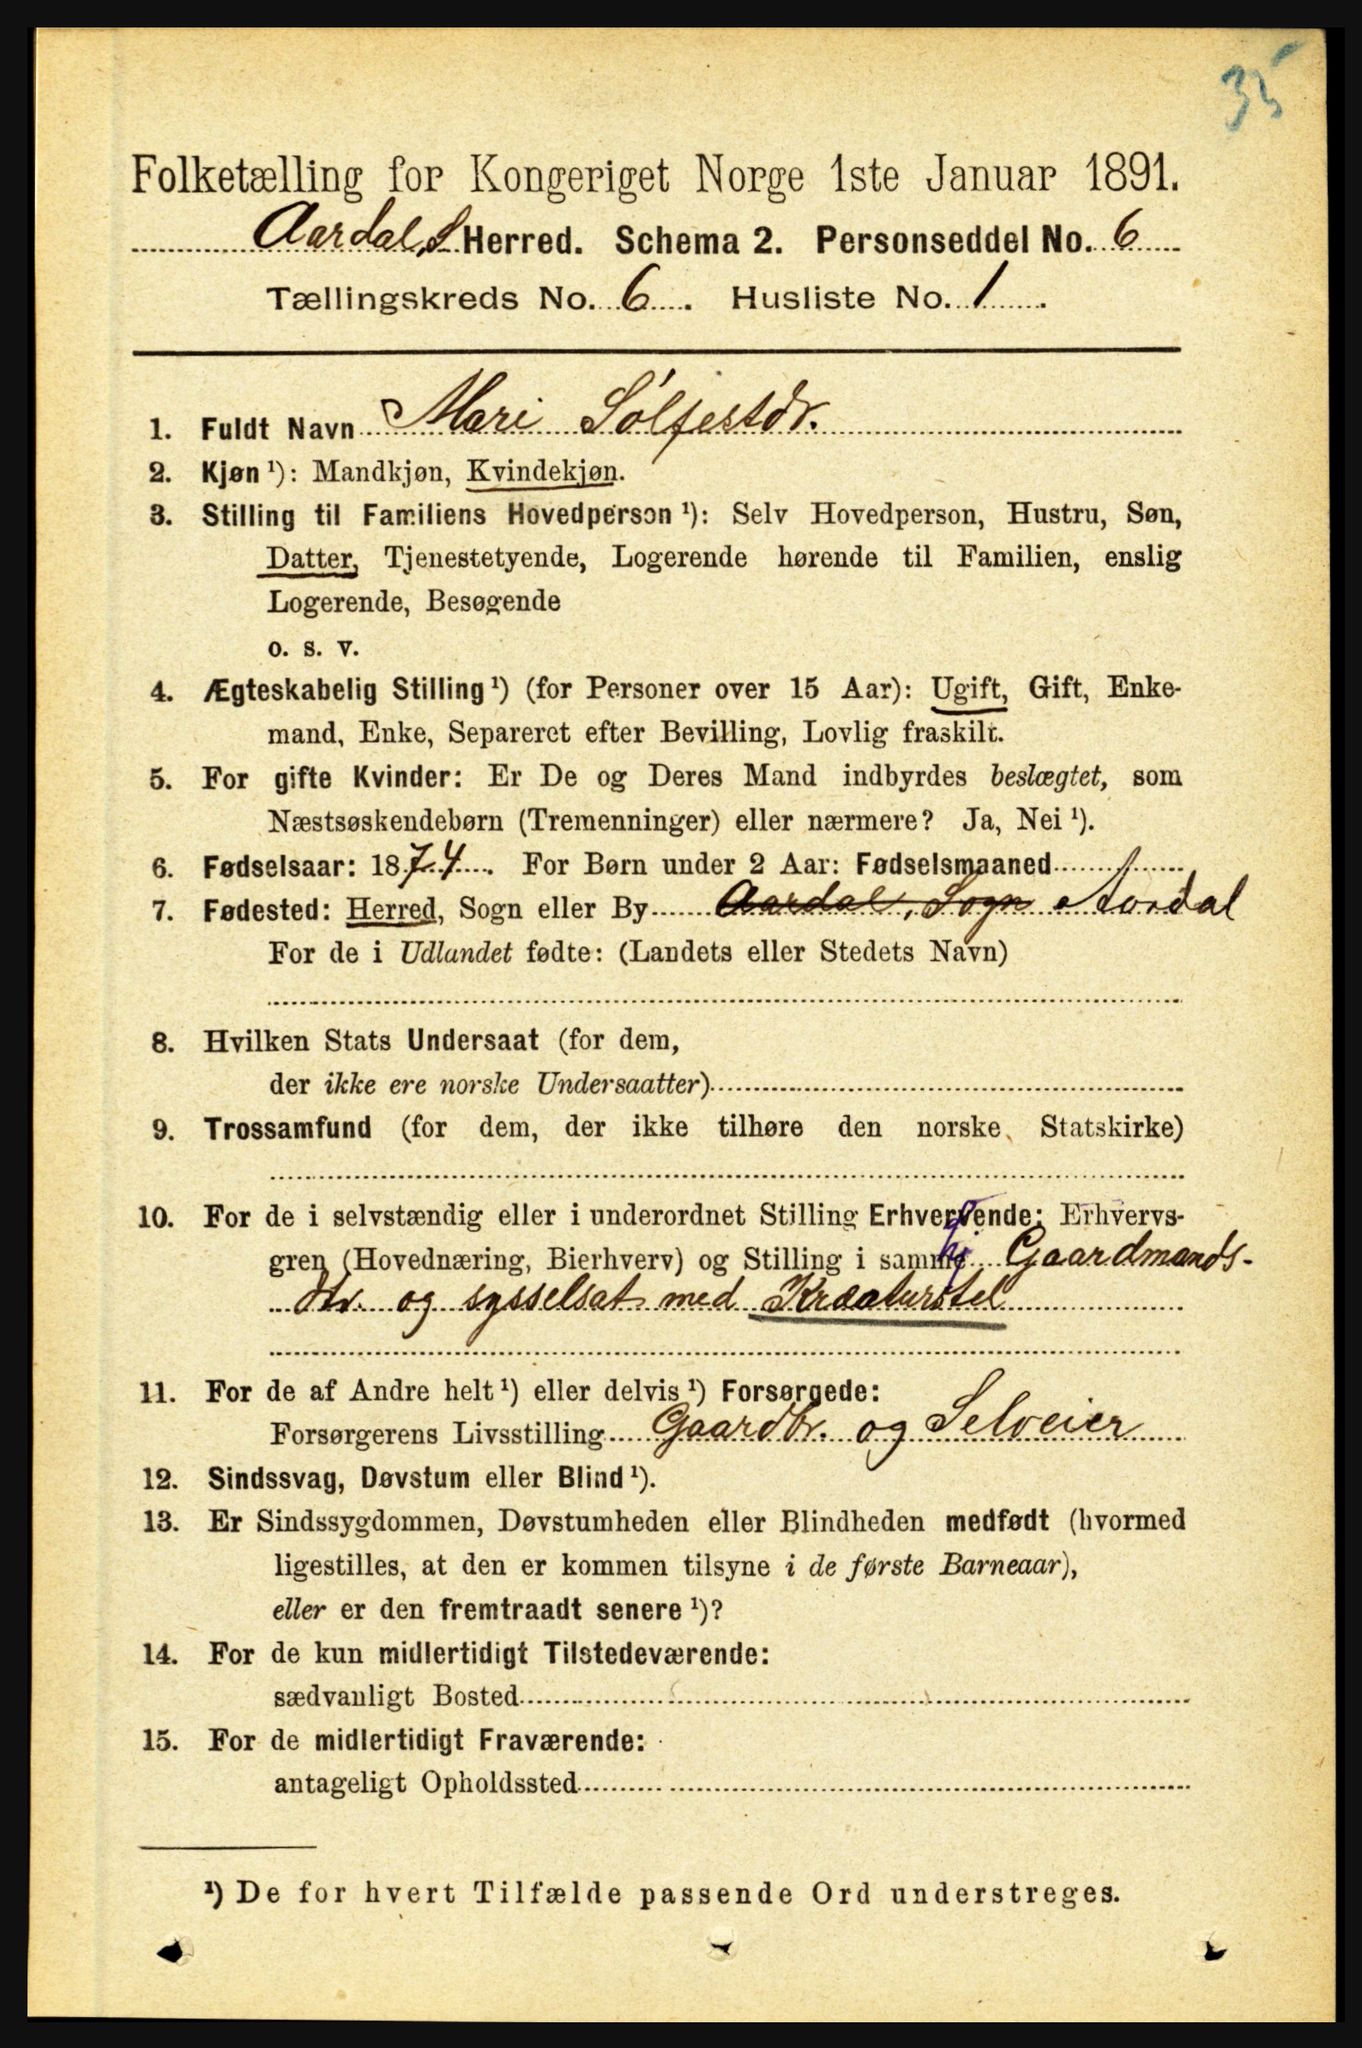 35
Folketælling for Kongeriget Norge 1ste Januar 1891.
Aardal, S Herred. Schema 2. Personseddel No. 6
Tællingskreds No. 6. Husliste No. 1.
1. Fuldt Navn Mari Sølfestdr.
2. Kjøn ¹): Mandkjøn, Kvindekjøn.
3. Stilling til Familiens Hovedperson ¹): Selv Hovedperson, Hustru, Søn,
Datter, Tjenestetyende, Logerende hørende til Familien, enslig
Logerende, Besøgende
o. s. v.
4. Ægteskabelig Stilling ¹) (for Personer over 15 Aar): Ugift, Gift, Enke-
mand, Enke, Separeret efter Bevilling, Lovlig fraskilt.
5. For gifte Kvinder: Er De og Deres Mand indbyrdes beslægtet, som
Næstsøskendebørn (Tremenninger) eller nærmere? Ja, Nei ¹).
6. Fødselsaar: 1874. For Børn under 2 Aar: Fødselsmaaned
7. Fødested: Herred, Sogn eller By Aardal, Sogn Aurdal
For de i Udlandet fødte: (Landets eller Stedets Navn)
8. Hvilken Stats Undersaat (for dem,
der ikke ere norske Undersaatter)
9. Trossamfund (for dem, der ikke tilhøre den norske Statskirke)
10. For de i selvstændig eller i underordnet Stilling Erhvervende: Erhvervs-
gren (Hovednæring, Bierhverv) og Stilling i samme Gaardmands-
dtr. og sysselsat med Kreaturstel
11. For de af Andre helt ¹) eller delvis ¹) Forsørgede:
Forsørgerens Livsstilling Gaardbr. og Selveier
12. Sindssvag, Døvstum eller Blind ¹).
13. Er Sindssygdommen, Døvstumheden eller Blindheden medfødt (hvormed
ligestilles, at den er kommen tilsyne i de første Barneaar),
eller er den fremtraadt senere ¹)?
14. For de kun midlertidigt Tilstedeværende:
sædvanligt Bosted
15. For de midlertidigt Fraværende:
antageligt Opholdssted
¹) De for hvert Tilfælde passende Ord understreges.